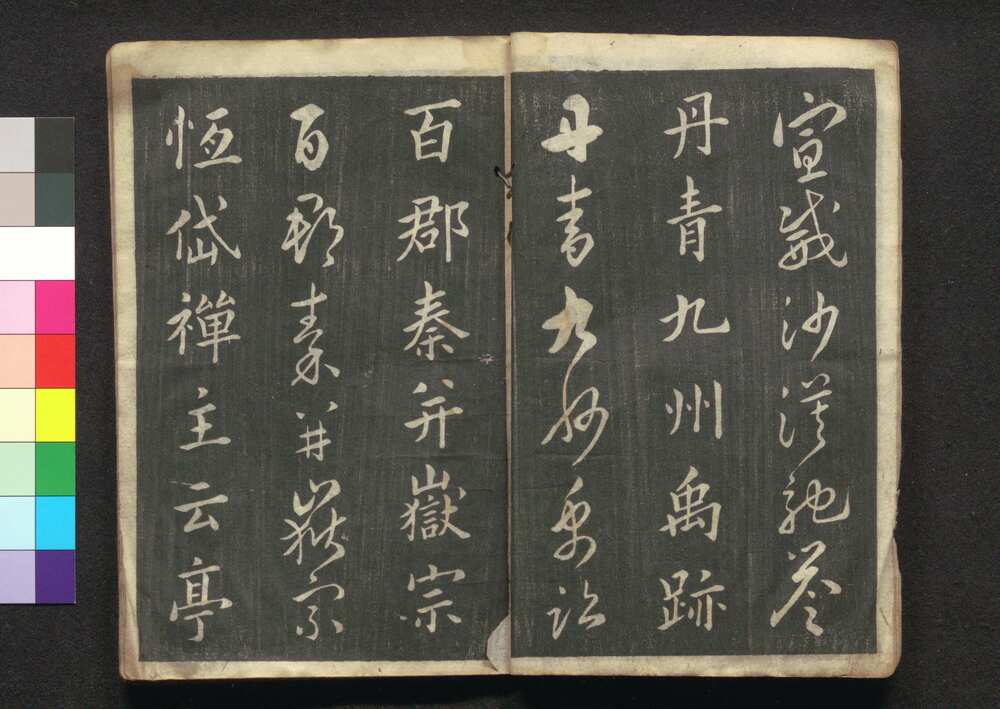 宣威沙漠馳譽
丹青九州禹跡
丹青九州禹跡
百郡秦并嶽宗
百郡秦并嶽宗
恆岱禪主云亭